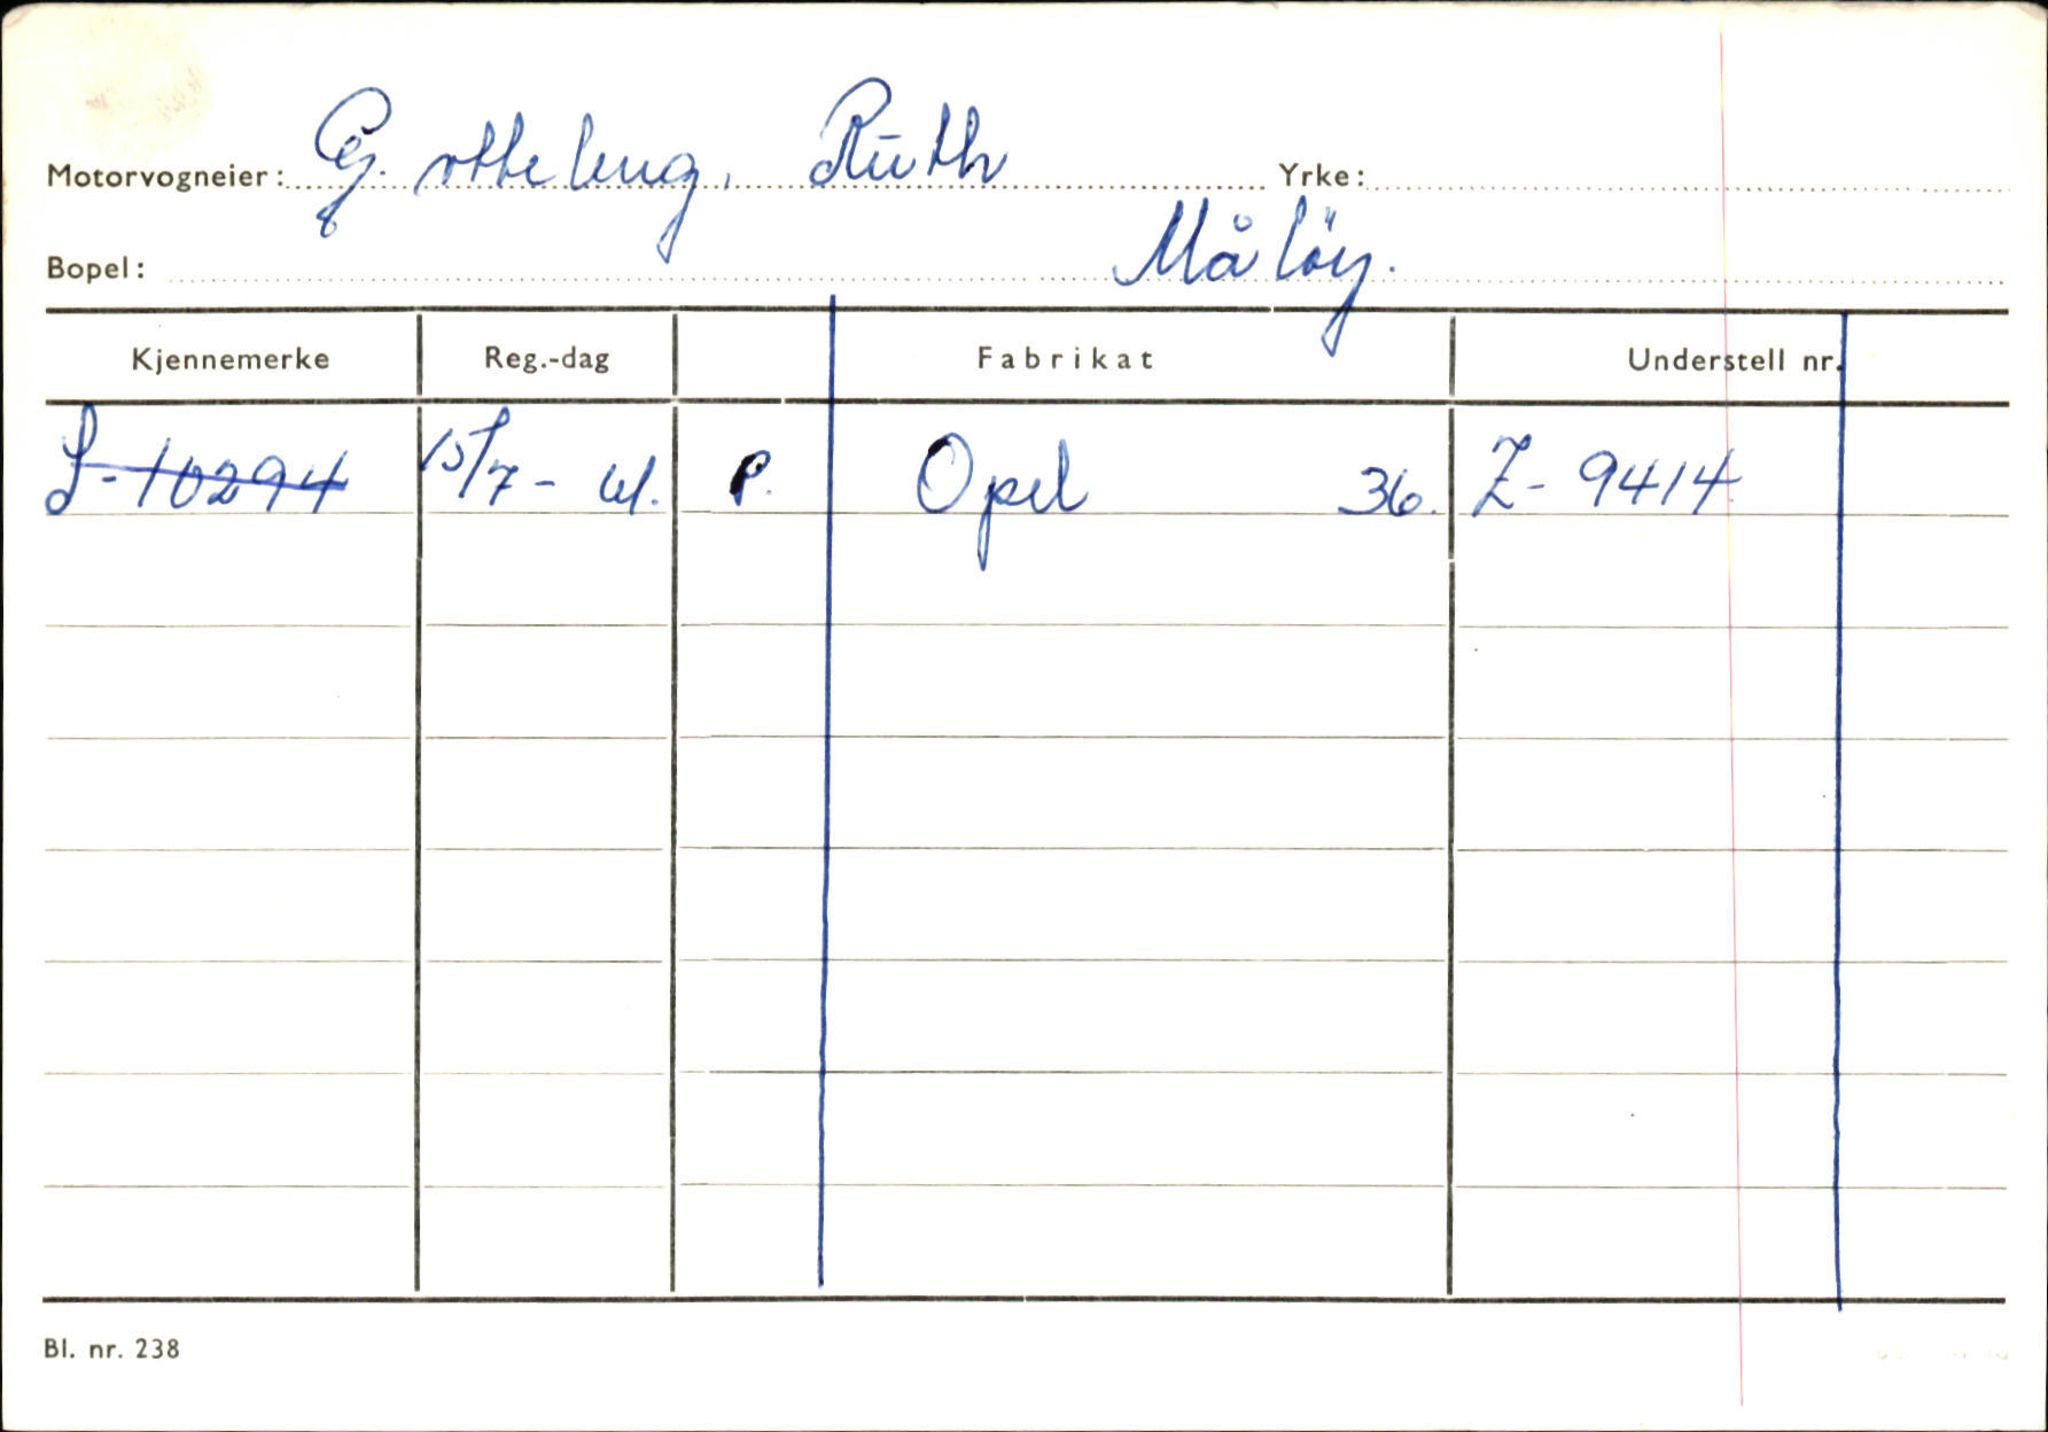 Motorvogneier: Gotteberg, Ruth Yrke:
Bopel: Målöy.
Kjennemerke Reg.-dag Fabrikat Understell nr.
S-10294 15/7-61. P. Opel 36. Z-9414
Bl. nr. 238